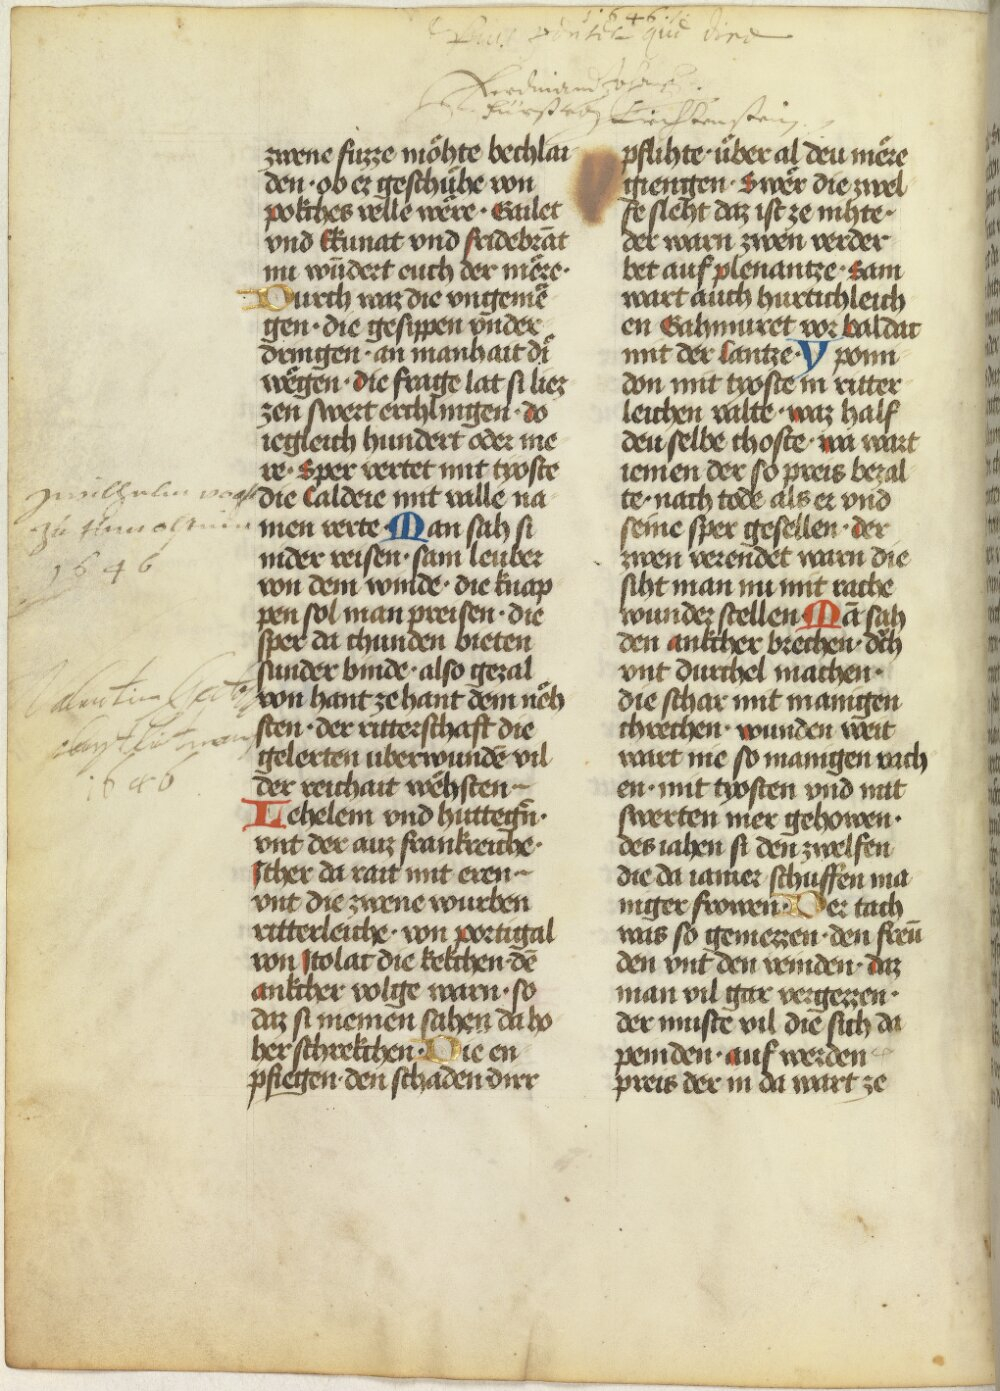 1646
qui
Ferdinand
Fürst von Liechtenstein
zwene fuzze möhte bechlai
den · ob er geschühe von
polkches velle wêre · Gailet
vnd kkunat vnd fridebrāt
nu wūdert euch der mêre ·
Durch waz die vngemê
gen · die gesippen vnder
dringen · an manhait di
wêgen · die frage lat si liez
zen swert erchlingen · do
iegleich hundert oder me
re · Sper vertet mit tyoste
die Caldeie mit valle na
men verte · Man sah si
nider reisen · sam leuber
von dem winde · die knap
pen sol man preisen · die
sper da chunden bieten
sunder binde · also gezal
von hant ze hant dem nêh
sten · der ritterschaft die
gelerten uberwundē vil
der reichait wêhsten ~
Lehelem vnd huttegn̄ ·
vnt der auz frankreiche ·
Ither da rait mit eren ~
vnt die zwene wurben
ritterleiche · von portigal
von Itolac die kekchen · dē
ankcher volge warn · so
daz si niemen sahen da ho
her schrekchen · Die en
pfiegen · den schaden dirr
pflihte · über al deu mêre
giengen · Swêr die zwel
fe sleht daz ist ze nihte ·
der warn zwen verder
bet auf plenantze · Sam
wart auch hurtichleich
en Gahmuret vor baldac
mit der lantze · Y pomi
don mit tyoste in ritter
leichen valte · waz half
deu selbe thoste · wa wart
iemen der so preis bezal
te · nach tode als er vnd
seine sper gesellen · der
zwen verendet warn die
siht man nu mit rache
wunder stellen · Mā sah
den ankcher brechen · dǒch
vnt durchel machen ·
die schar mit manigen
chrechen · wunden weit
wart nie so manigen vach
en · mit tyosten vnd mit
swerten mer gehowen ·
des iahen si den zwelfen
die da iamer schuffen ma
niger frowen · Der tach
was so gemezzen · den freū
den vnt den veinden · daz
man vil gar vergezzen ·
der muste vil die sich da
peinden · auf werden
preis der in da wart ze
1646
1646